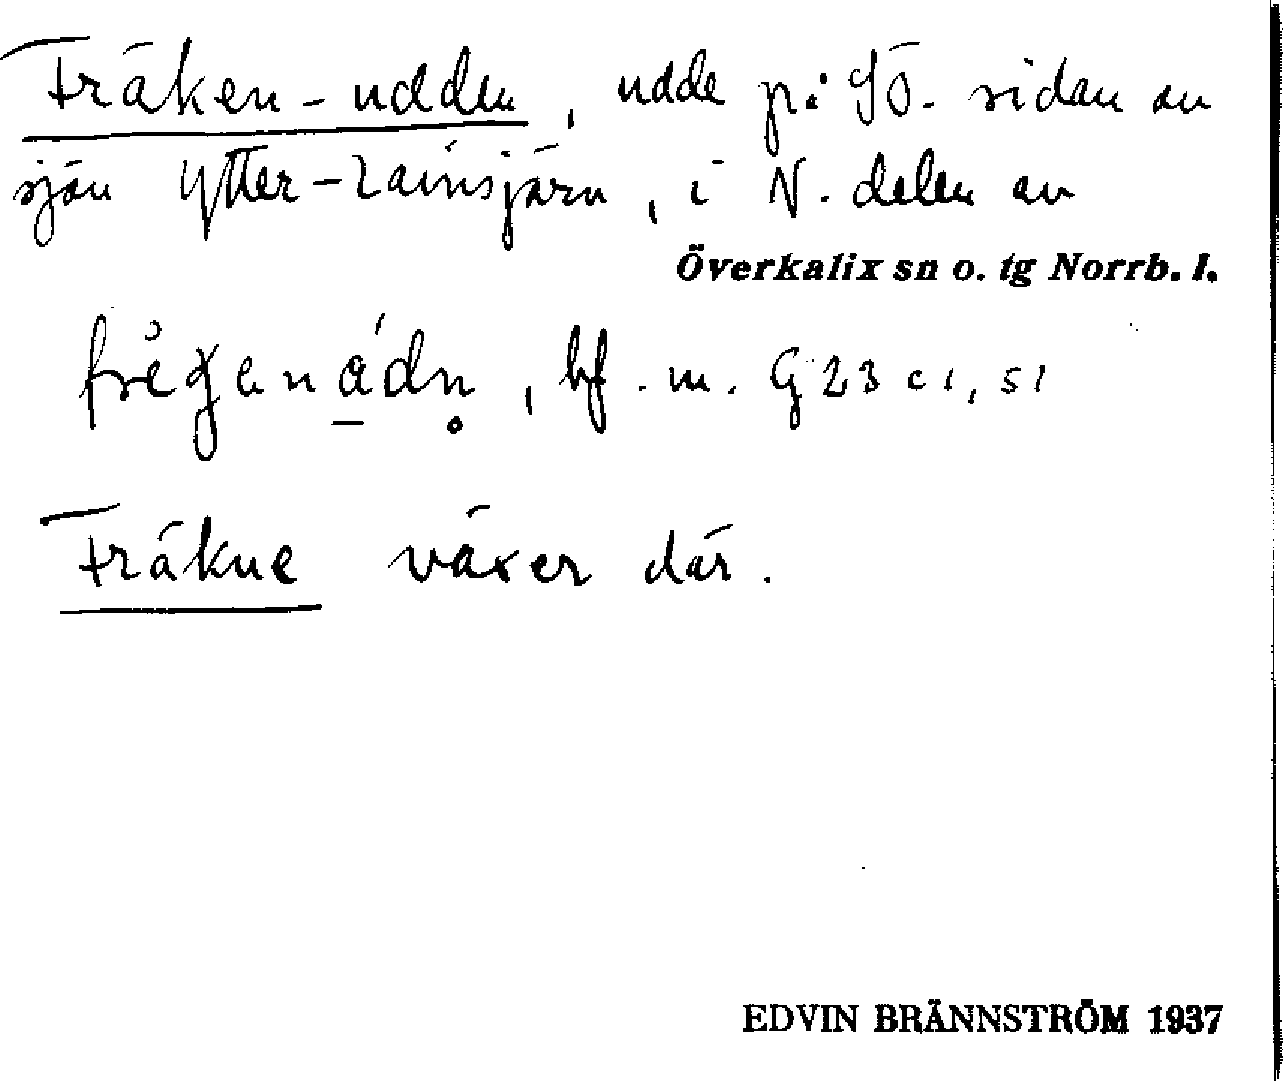 Fräken-udden, udde på SÖ. sidan av
sjön Ytter-Lainsjärv, i N. delen av
Överkalix sn o. tg Norrb. l.
frègenádn̥, bf. m. G23 c1, s1
Fräkne växer där.
EDVIN BRÄNNSTRÖM 1937